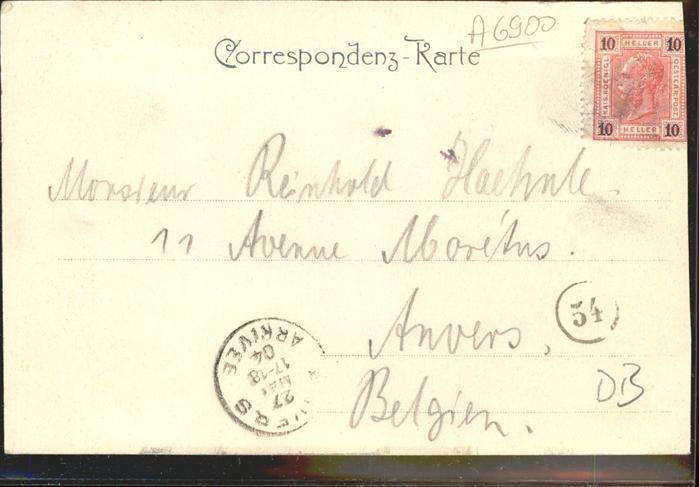 A6900
Correspondenz-Karte
10 HELLER 10
KAIS. KOENIGL. OESTERR. POST
10 HELLER 10
Monsieur Reinhold Haehnle.
11 Avenue Morétus.
Anvers,
Belgien.
54
DB
ARRIVEE
04
17-18
27